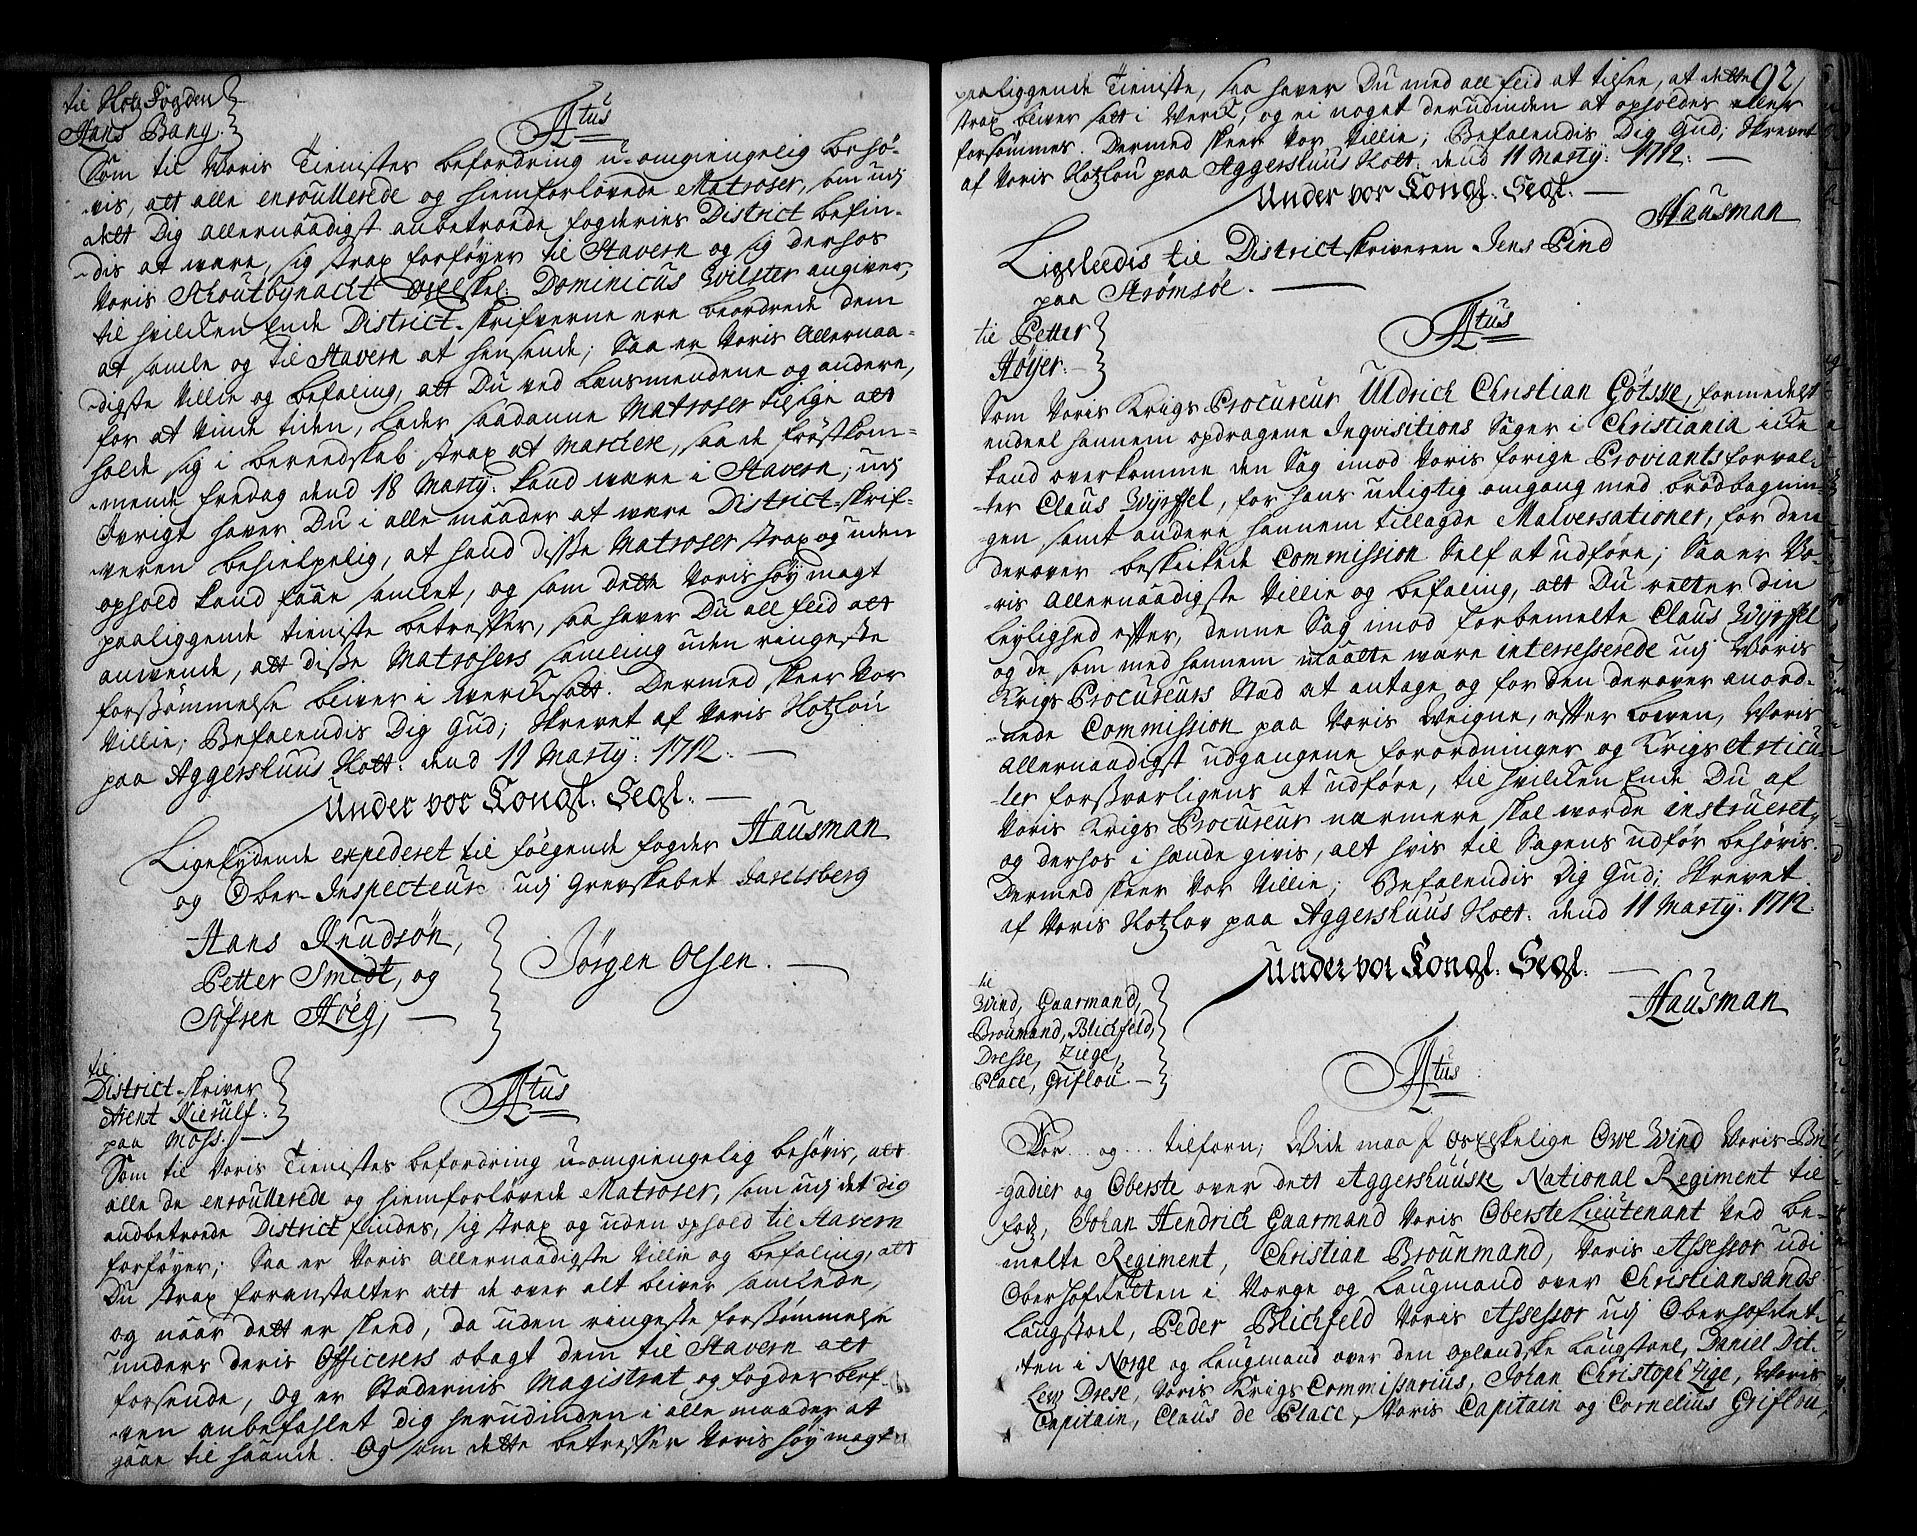 til Kotz Fogden
Hans Bang.
Ftus
Som til Voris Tienistes befordring u-omgiengelig behø-
vis, att alle enroullerede og hiemforløvede Matroser, som udj
dett Dig allernaadigst anbetroede fogderies District befin-
dis at være, sig strax forføyer til Stavern og sig derhos
Voris Schoutbynacht Dominicus Wilster angiver,
til hvilcken Ende District-skrifverne ere beordrede dem
at samle og til Stavern at hensende; Saa er Voris Allernaa-
digste Villie og befaling, att Du ved Lensmendene og andere,
for at vinde tiden, lader saadanne Matroser tilsige att
holde sig i bereedskab strax at marchere, saa de førstkom-
mende fredag dend 18 Martij: kand være i Stavern; udj
Øvrigt haver Du i alle maader at være District-skrif-
veren behielpelig, at hand disse Matroser strax og uden
ophold kand faae samlet, og som dette Voris høy magt
paaliggende tieniste betreffer, saa haver Du all fliid att
anvende, att disse Matrosers samling uden ringeste
forsømmelse bliver i verck satt. Dermed skeer Vor
Villie; Befalendis Dig Gud; Skrevet af Voris Slotzlou
paa Aggershuus Slott: dend 11 Martij: 1712.
Under vor Kongl: Segl.
Hausman
Ligelydende expederet til følgende fogder
og Ober-Inspecteur udj Grevskabet Jarelsberg
Hans Knudsøn,
Petter Smidt, og
Søfren Høeg,
Jørgen Olsen.
til
District-skriver
Arent Kierulf
paa Moss.
Ftus
Som til Voris Tienistes befordring u-omgiengelig behøvis, att
alle de enroullerede og hiemforløvede Matroser, som udj det dig
andbetroede District findes, sig strax og uden ophold til Stavern
forføyer; Saa er Voris Allernaadigste Villie og befaling, att
Du strax foranstalter att de over alt bliver samlede,
og naar dett er skeed, da uden ringeste forsømmelse
unders deris Officerers obsgt dem til Stavern att
forsende, Og er Stædernis Magistrat og fogder
ven anbefahlet dig herudinden i alle maader at
gaae til haande. Og som dette betreffer Voris høy magt
92,
paaliggende Tieniste, saa haver Du med all fliid at tilsee, at dette
strax bliver satt i Verck, og ei noget derudinden at opholdes eller
forsømmes. Dermed skeer Vor Villie; Befalendis Dig Gud; Skrevet
af Voris Slotzlou paa Aggershuus Slott: dend 11 Martij: 1712.
Under vor Kongl: Segl.
Hausman
Ligeledis til Districtskriveren Jens Pind
paa Strømsøe.
til Petter
Høyer.
Ftus
Som Voris Krigs Procureur Uldrich Christian Götske, formedelst
endeel hannem opdragene Inqvisitions Sager i Christiania icke
kand overkomme den Sag imod Voris forige Proviantsforval-
ter Claus Wyrffel, for hans urigtig omgang med brødbagnin-
gen samt andere hannem tillagde Malversationer, for den
derover beskickede Commission Self at udføre; Saa er Vo-
ris Allernaadigste Villie og befaling, att Du retter din
leylighed effter, denne Sag imod forbemelte Claus Wyrffel
og de som med hannem maatte være interresserede udj Voris
Krigs Procureurs Stad at antage og for den derover anord-
nede Commission paa Voris Veigne, efter Lowen, Voris
Allernaadigst udgangene forordninger og Krigs Articu-
ler forsvarligens at udføre, til hvilcken Ende Du af
Voris Krigs Procureur nærmere skal worde instrueret,
og derhos i hænde givis, alt hvis til Sagens udfør behøvis.
Dermed skeer Vor Villie; Befalendis Dig Gud; Skrevet
af Voris Slotzlov paa Aggershuus Slott: dend 11 Martij: 1712.
Under vor Kongl: Segl.
Hausman
til
Wind, Gaarmand,
Broumand, Blichfeld,
Dresse, Ziege,
Place, Griflou.
Ftus
Vor.. og.. tilforn; Vide maa I Oxelskelige Owe Wind Voris Bri-
gadier og Oberste over dett Aggershuuske National Regiment til
fodz, Johan Hendrich Gaarmand Voris OberstLieutenant ved be-
melte Regiment, Christian Brounmand, Voris Assessor udi
Oberhofretten i Norge og Laugmand over Christiansands
Laugstoel, Peder Blichfeld Voris Assessor udj Oberhofret-
ten i Norge og Laugmand over den oplandske Laugstoel, Daniel Dit-
Lew Drese, Voris Krigs Commissarius, Johan Christoph Zige, Voris
Capitain, Claus de Place, Voris Capitain og Cornelius Griflou,